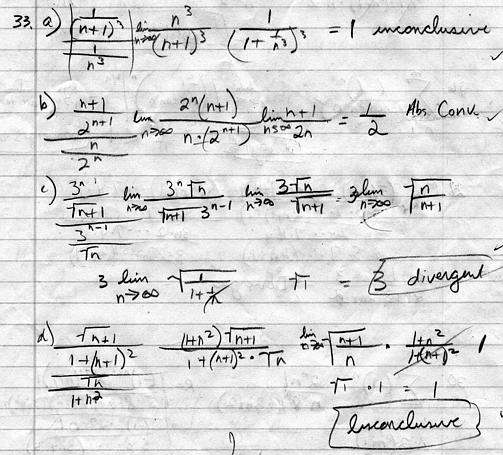 33. a) |(1/(n+1)^3)/(1/n^3)| lim n→∞ n^3/(n+1)^3 1/(1+1/n^3)^3 = 1 inconclusive ✓
b) ((n+1)/2^{n+1})/(n/2^n) lim n→∞ 2^n(n+1)/(n-(2^{n+1})) lim n→∞ (n+1)/2n = 1/2 Abs. Conv. ✓
c) (3^n/√(n+1))/(3^{n-1}/√n) lim n→∞ 3^n·√n/(√(n+1) 3^{n-1}) lim n→∞ 3√n/√(n+1) = 3 lim n→∞ √(n/(n+1))
3 lim n→∞ √(1/(1+1/n)) √1 = 3 divergent ✓
d) (√(n+1)/(1+(n+1)^2))/(√n/(1+n^2)) (1+n^2)√(n+1)/(1+(n+1)^2·√n) lim n→∞ √((n+1)/n) · (1+n^2)/(1+(n+1)^2) 1
√1 · 1 = 1
Inconclusive